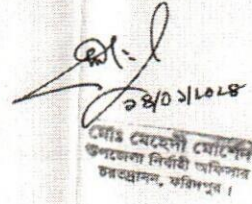 ২৪/০১/২০২৪
মোঃ মেহেদী মোর্শেদ
উপজেলা নির্বাহী অফিসার
চরভদ্রাসন, ফরিদপুর।